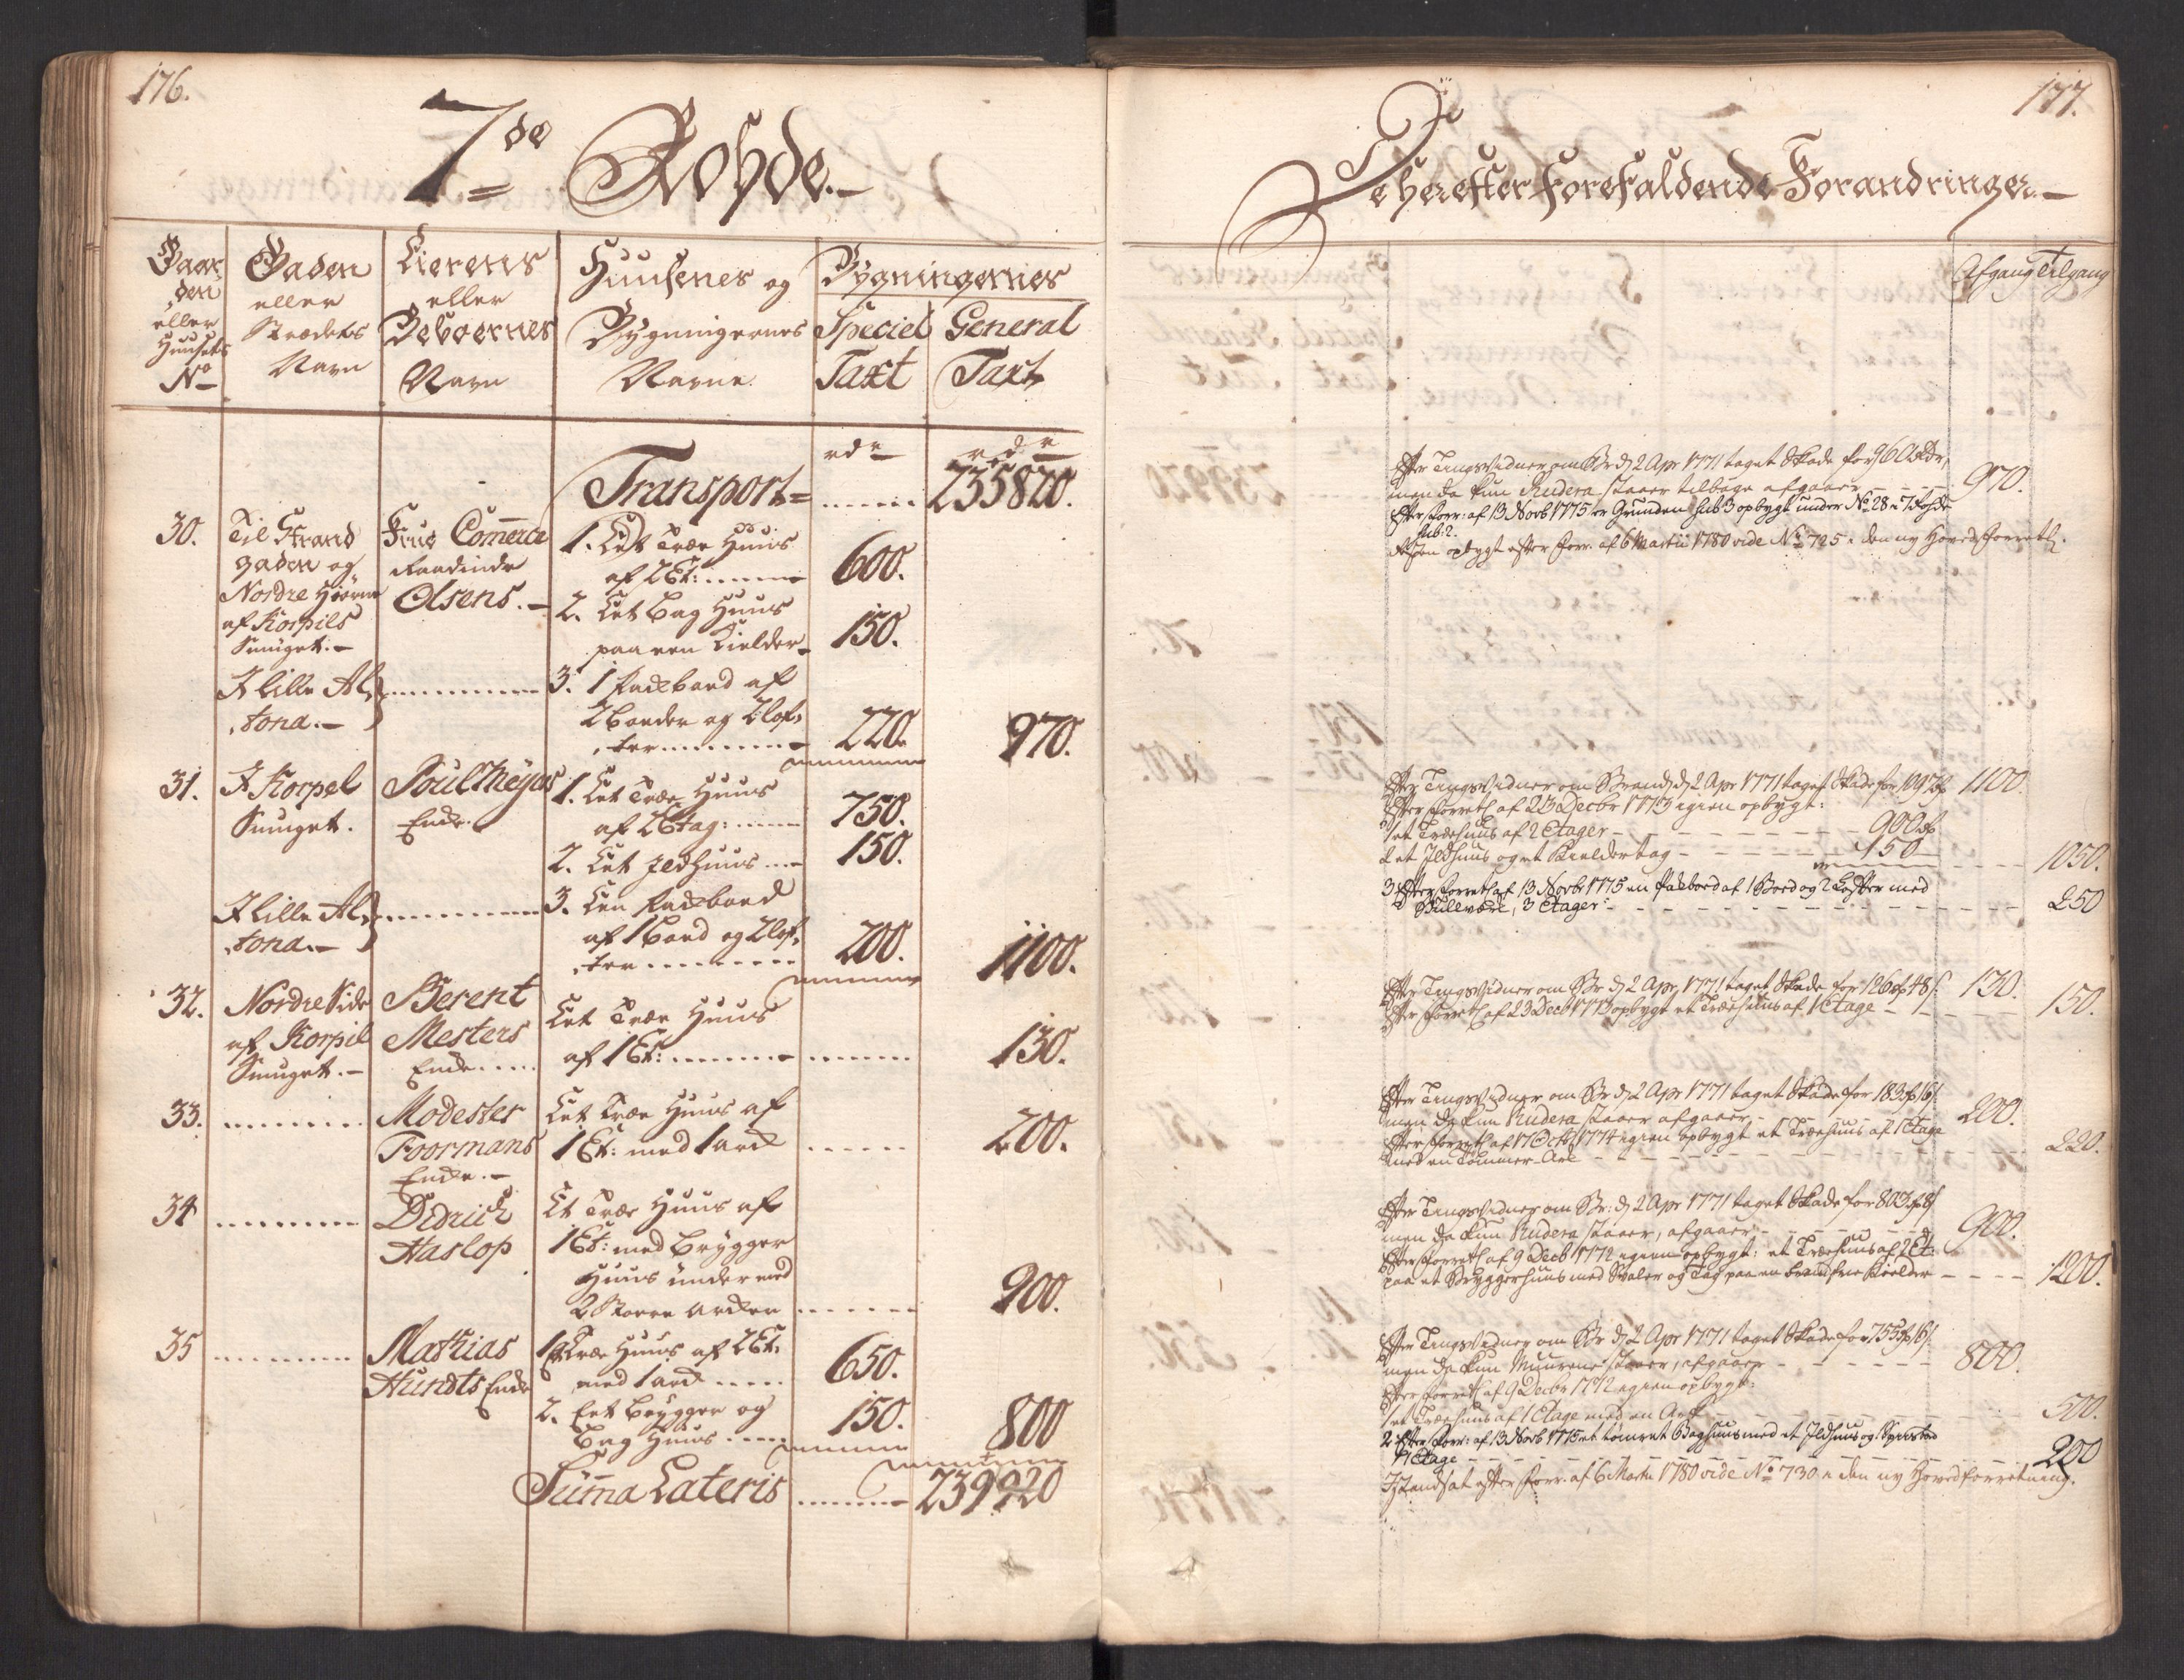 176.
7de Rohde.
Gaar-
den
eller
Huusets
No
Gaden
eller
Strædets
Navn
Eierens
eller
Beboernes
Navn
Huusenes og
Bygningernes
Navne
Bygningernes
Speciel
Taxt
General
Taxt
rdr
rdr
Transport = 235820.
30.
Til Strand
gaden og
Nordre Hiørne
af Korpils
Smuget.
Frue Comerce
Raadinde
Olsens.
1. Eet Træe Huus
af 2 Et: 600.
2. Eet Bag Huus
paa een Kielder 150.
I lille Al-
tona.
3. 1 Pakboed af
2 Boeder og 2 Lof-
ter 220. 970.
31.
I Korpel
Smuget.
Poul Meyers
Enke.
1. Eet Træe Huus
af 2 Etag: 750.
2. Eet Ildhuus 150.
I Lille Al-
tona.
3. Een Pakboed
af 1 Boed og 2 Lof-
ter 200. 1100.
32.
Nordre Side
af Korpil
Smuget.
Berent
Mesters
Enke
Eet Træe Huus
af 1 Et: 130.
33.
Modester
Foormans
Enke.
Eet Træe Huus af
1 Et: med 1 ark 200.
34
Didrich
Haslop
Et Træe Huus af
1 Et: med Brygger
Huus under med
2 Store arker 900.
35
Mathias
Hundts Enke
1 Et Træe Huus af 2 Et:
med 1 ark 650.
2. Eet Brygger og
Bag Huus 150. 800
Suma Lateris 239920
177.
De herefter forefaldende Forandringer.
Afgang Tilgang
Efter Tingsvidner om Br d 2 Apr 1771 taget Skade for 960 Rdr,
men da kun Rudera staaer tilbage afgaaer 970.
Efter Forr: af 13 Novb 1775 er Grunden sub 3 opbygt under No 28 i 7 Rohde
sub: 2.
opbygt efter Forr. af 6 Martii 1780 vide No 725 i den ny Hoved Forretn.
Efter Tingsvidner om Brand d 2 Apr 1771 taget Skade for 1097 1100.
Efter Forretn af 23 Decbr 1773 igien opbygt:
1 et Træehuus af 2 Etager 900
2 et Ildhuus og et Kieldertag 150 1050.
3 Efter Forretn af 13 Novb 1775 en Pakboed af 1 Boed og 2 Lofter med
Bulværk, 3 Etager 250
Efter Tingsvidner om Br d 2 Apr 1771 taget Skade for 126 48 130.
Efter Forretn af 23 Decb 1773 opbygt et Træehuus af 1 Etage 150.
Efter Tingsvidner om Br d 2 Apr 1771 taget Skade for 183 16
men da kun Rudera staaer afgaaer 200.
Efter Forretn af 17 Octb 1774 igien opbygt et Træehuus af 1 Etage
med en Tømmer-Ark 220.
Efter Tingsvidner om Br: d 2 Apr 1771 taget Skade for 803 8
men da kun Rudera staaer, afgaaer 900.
Efter Forretn af 9 Decb 1772 igien opbygt: et Træehuus af 2 Et:
paa et Bryggerhuus med Svaler og Tag paa en brandfrie Kielder 1200.
Efter Tingsvidner om Br d 2 Apr 1771 taget Skade for 753 16
men da kun Muurene staaer, afgaaer 800.
Efter Forretn af 9 Decbr 1772 igien opbygt:
1 et Træehuus af 1 Etage med en Ark 500.
2 Efter Forr: af 13 Novb 1775 et tømret Baghuus med et Ildhuus og
1 Etage 200
Istandsat efter Forr. af 6 Martii 1780 vide No 730 i den ny Hovedforretning.